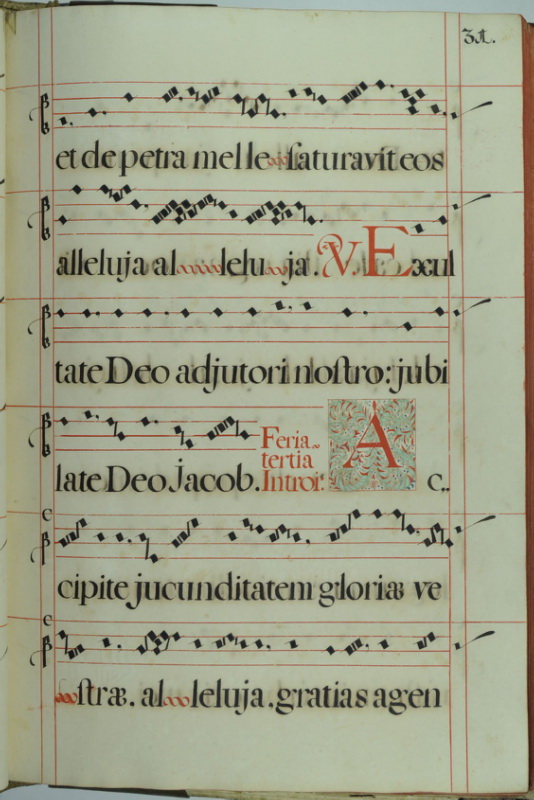 et de petra melle saturavit eos
alleluja alleluja. V. Excul
tate Deo adjutori nostro: jubi
late Deo Jacob. Feria
tertia
Introi: Ac..
cipite jucunditatem gloriæ ve
stræ. alleluja. gratias agen